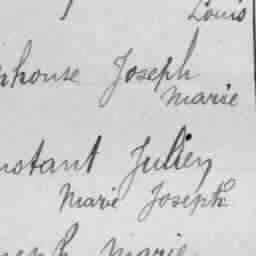 Louis
phonse Joseph
Marie
nstant Julien
Marie Joseph
seph Marie